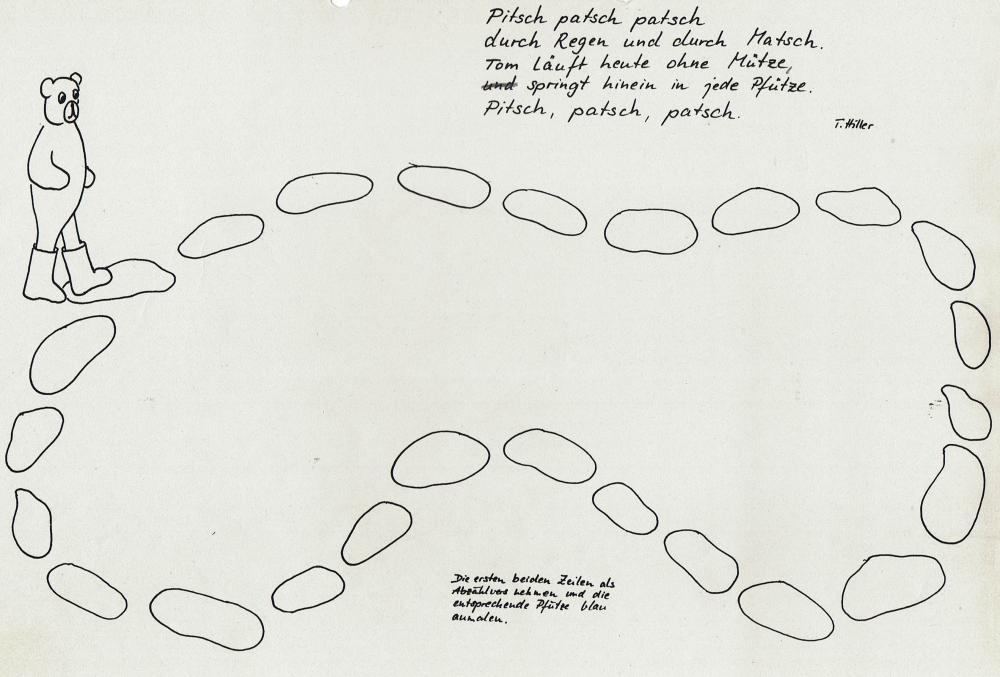 Pitsch patsch patsch
durch Regen und durch Matsch.
Tom läuft heute ohne Mütze,
und springt hinein in jede Pfütze.
Pitsch, patsch, patsch.
T. Hiller
Die ersten beiden Zeilen als
Abzählvers nehmen und die
entsprechende Pfütze blau
anmalen.